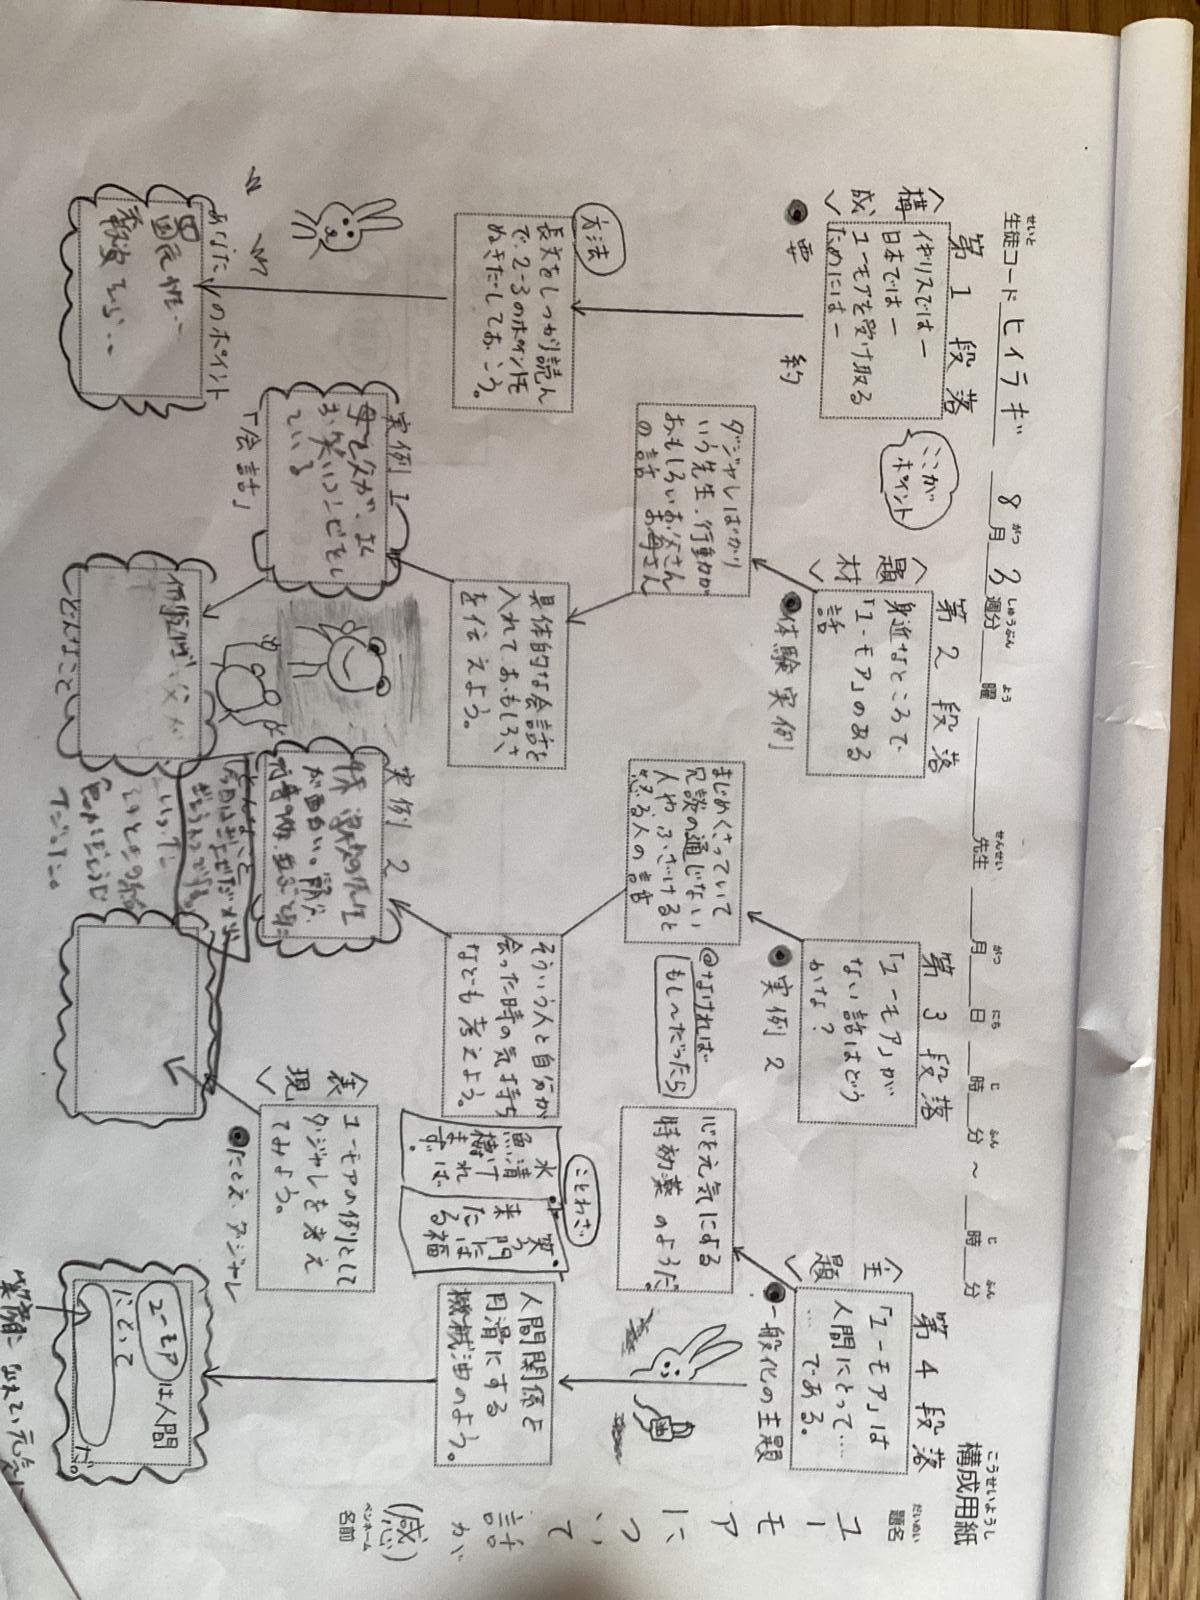 構成用紙
こうせいようし
生徒コード ヒイラギ 8月3週分 曜 先生 月 日 時 分 ～ 時 分
せいと がつ しゅうぶん よう せんせい がつ にち じ ふん じ ふん
題名
だいめい
ユーモアについて
話か
(感)
ペンネーム
名前
第1段落
〈構成〉
イギリスではー
日本ではー
ユーモアを受け取る
ためにはー
ここが
ポイント
●要約
方法
長文をしっかり読ん
で、2-3のポイントを
ぬきだしておこう。
あなたのポイント
第2段落
〈題材〉
身近なところで
「ユーモア」のある
話
●体験実例
ダジャレばかり
いう先生、行動が
おもしろいお父さん
お母さん
の話
具体的な会話を
入れておもしろさ
を伝えよう。
実例1
母と父が、
お笑いコンビをし
ている
「会話」
どんなこと
第3段落
「ユーモア」が
ない話はどう
かな?
●実例2
まじめくさっていて
冗談の通じない
人や ふざけると
怒る人の話
@なければ
もし〜だったら
そういう人と自分が
会った時の気持ち
なども考えよう。
実例2
どんなこと
〈表現〉
ユーモアの例として
ダジャレを考え
てみよう。
●たとえ、ダジャレ
第4段落
〈主題〉
「ユーモア」は
人間にとって……
……である。
●一般化の主題
心を元気にする
特効薬のようだ。
ことわざ
水清ければ
魚棲まず。
笑う門には
福来たる
人間関係を
円滑にする
機械油のよう。
ユーモアは人間
にとって
だ。